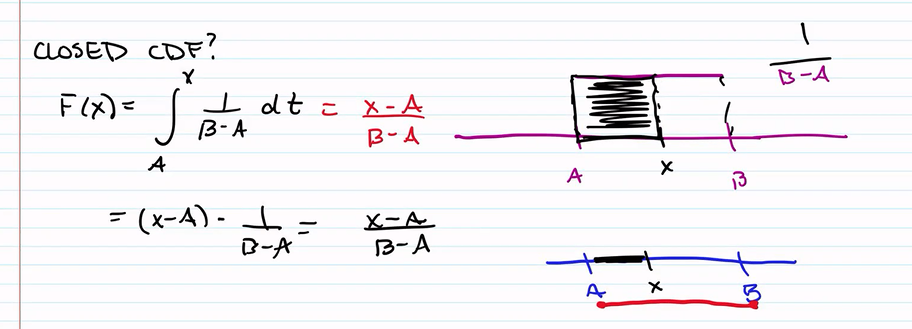 CLOSED CDF?
F(x) = ∫_A^x 1/(B-A) dt = (x-A)/(B-A)
= (x-A) · 1/(B-A) = (x-A)/(B-A)
1/(B-A)
A x B
A x B